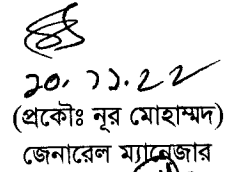 ২০.১১.২২
(প্রকৌঃ নূর মোহাম্মদ)
জেনারেল ম্যানেজার